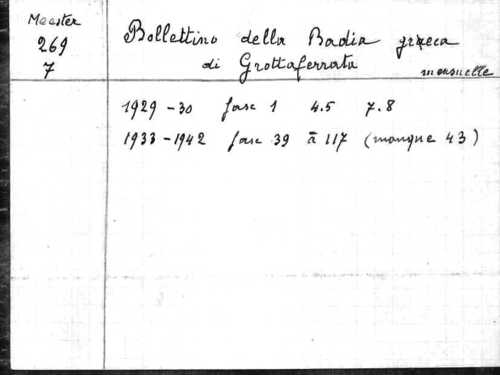 Meester
269
7
Bollettino della Badia græca
di Grottaferrata
mensuelle
1929-30 fasc 1 4.5 7.8
1933-1942 fasc 39 à 117 (manque 43)